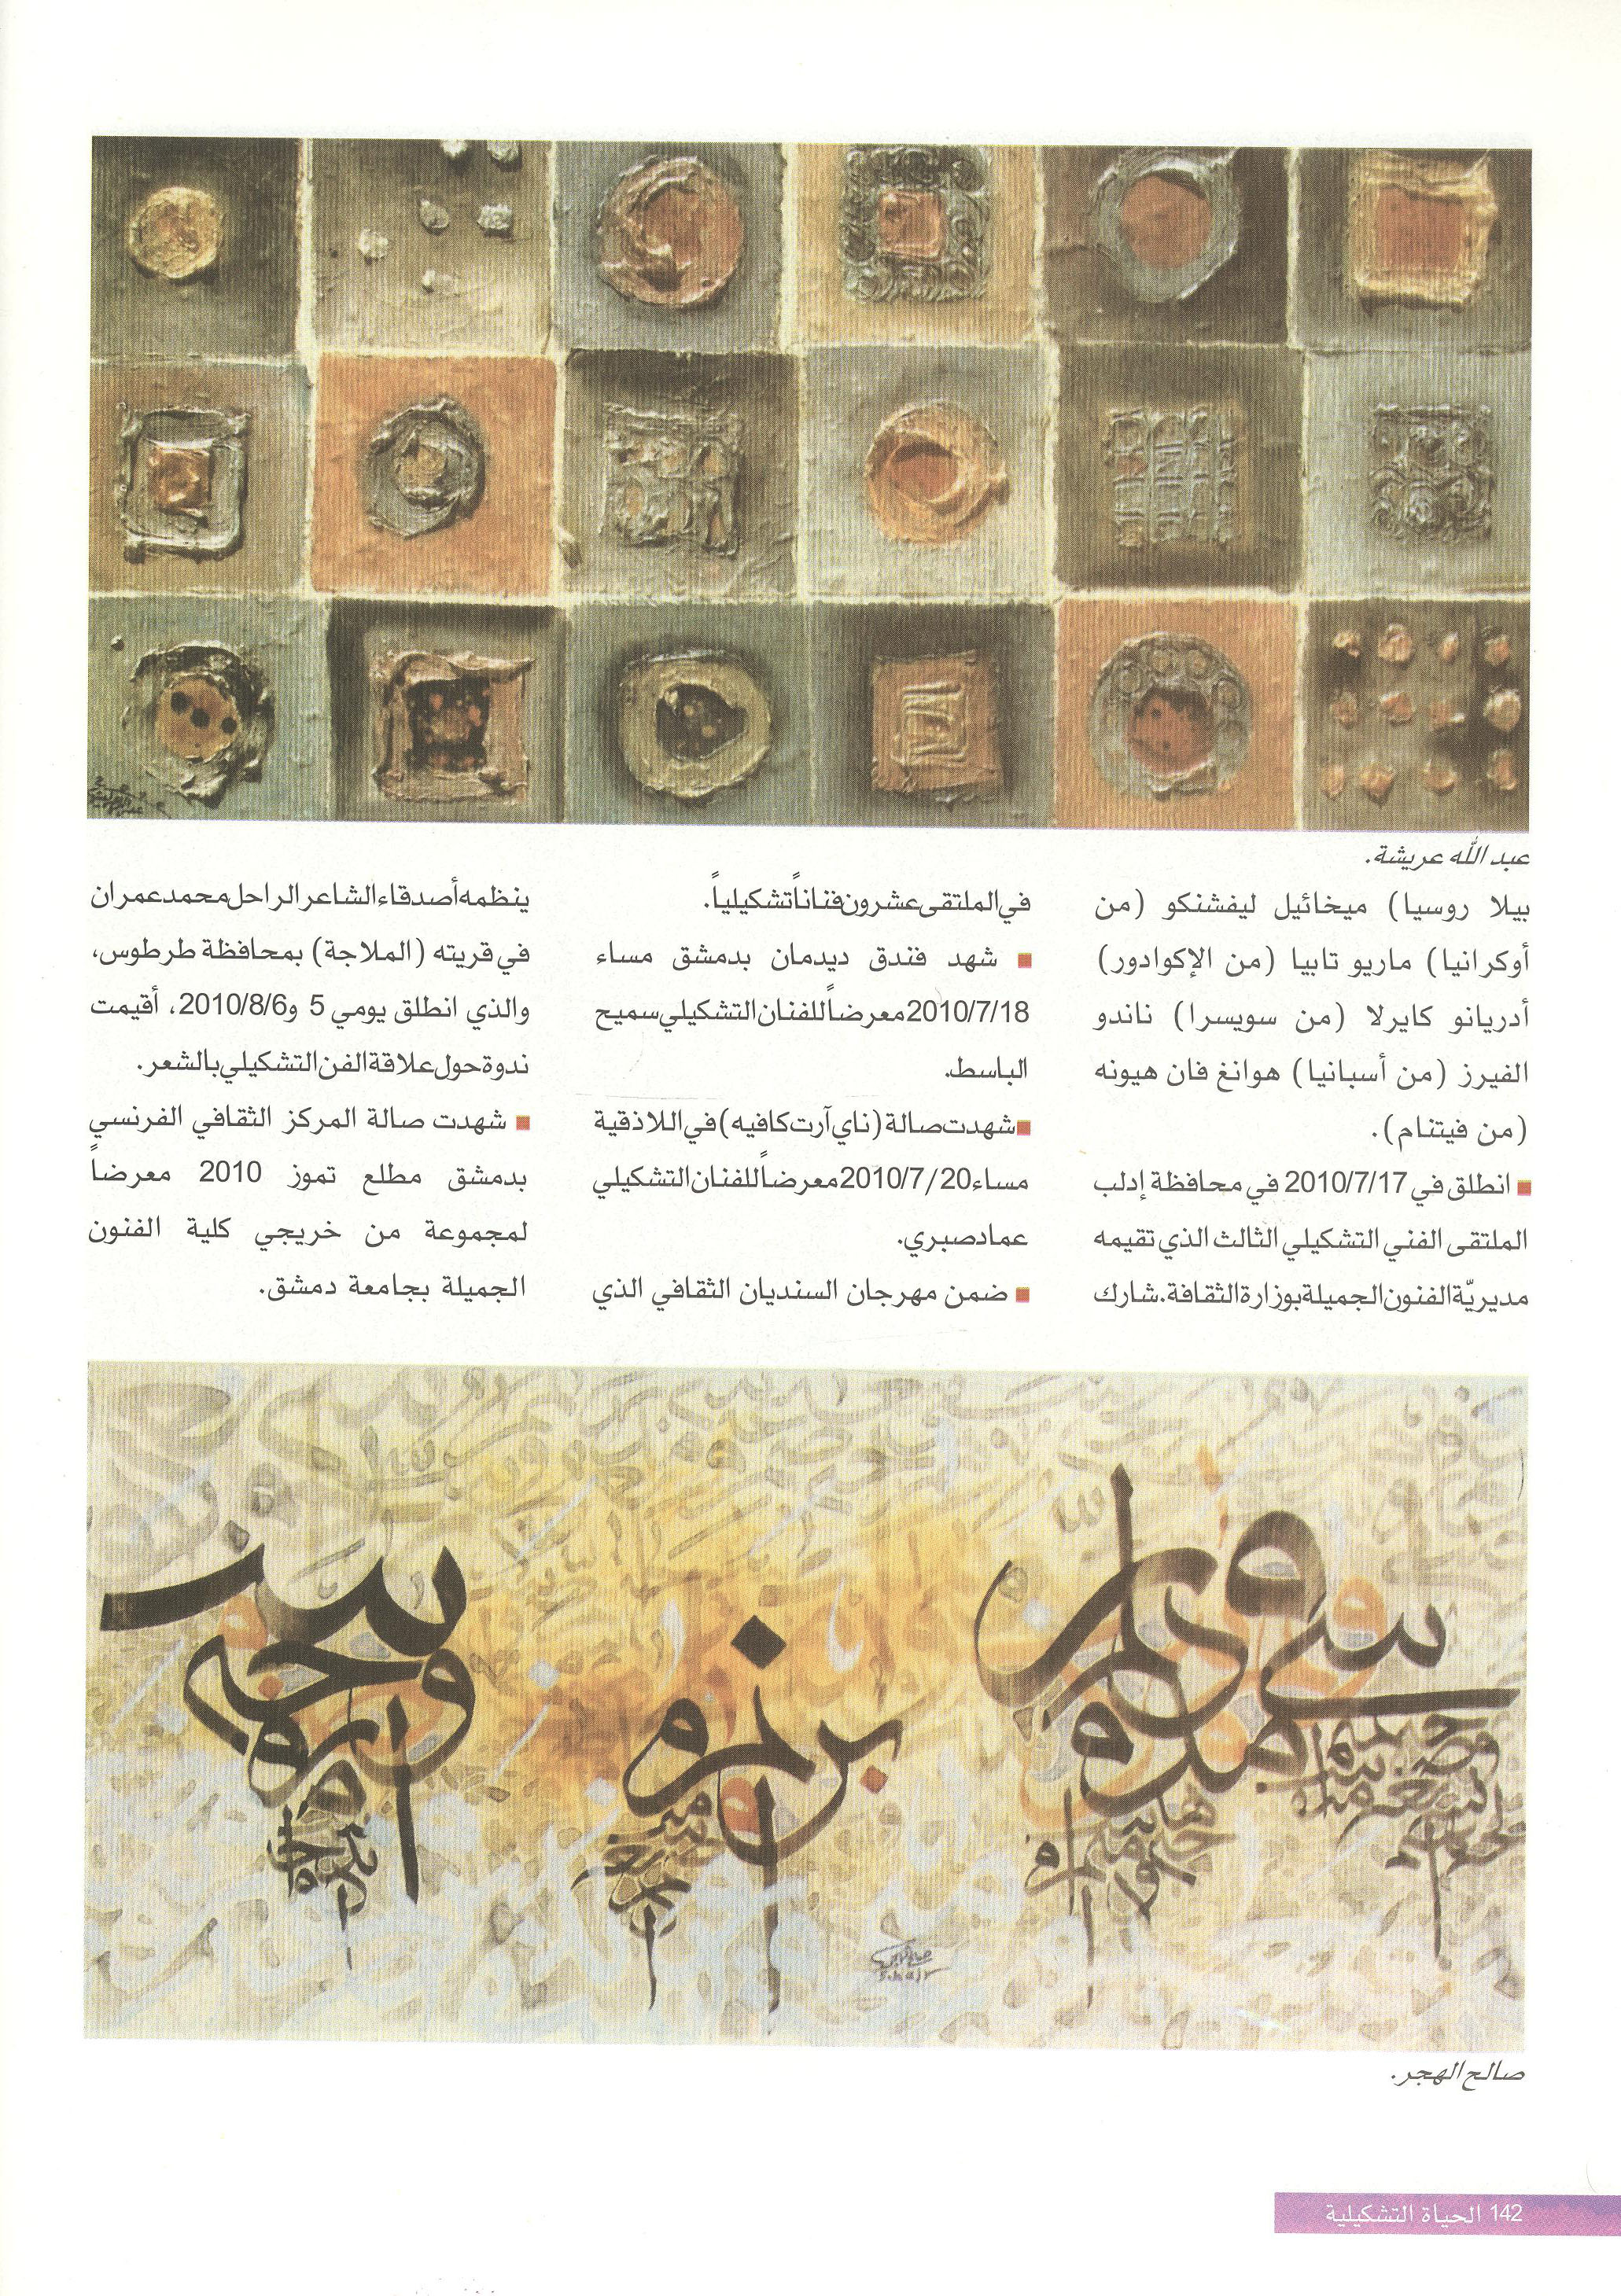 عبد الله عريشة.
بيلا روسيا) ميخائيل ليفشنكو (من
أوكرانيا) ماريو تابيا (من الإكوادور)
أدريانو كايرلا (من سويسرا) ناندو
الفيرز (من أسبانيا) هوانغ فان هيونه
(من فيتنام).
■ انطلق في 2010/7/17 في محافظة إدلب
الملتقى الفني التشكيلي الثالث الذي تقيمه
مديريّة الفنون الجميلة بوزارة الثقافة. شارك
في الملتقى عشرون فناناً تشكيلياً.
■ شهد فندق ديدمان بدمشق مساء
2010/7/18 معرضاً للفنان التشكيلي سميح
الباسط.
■ شهدت صالة (ناي آرت كافيه) في اللاذقية
مساء 2010/7/20 معرضاً للفنان التشكيلي
عماد صبري.
■ ضمن مهرجان السنديان الثقافي الذي
ينظمه أصدقاء الشاعر الراحل محمد عمران
في قريته (الملاجة) بمحافظة طرطوس،
والذي انطلق يومي 5 و2010/8/6، أقيمت
ندوة حول علاقة الفن التشكيلي بالشعر.
■ شهدت صالة المركز الثقافي الفرنسي
بدمشق مطلع تموز 2010 معرضاً
لمجموعة من خريجي كلية الفنون
الجميلة بجامعة دمشق.
صالح الهجر.
142 الحياة التشكيلية